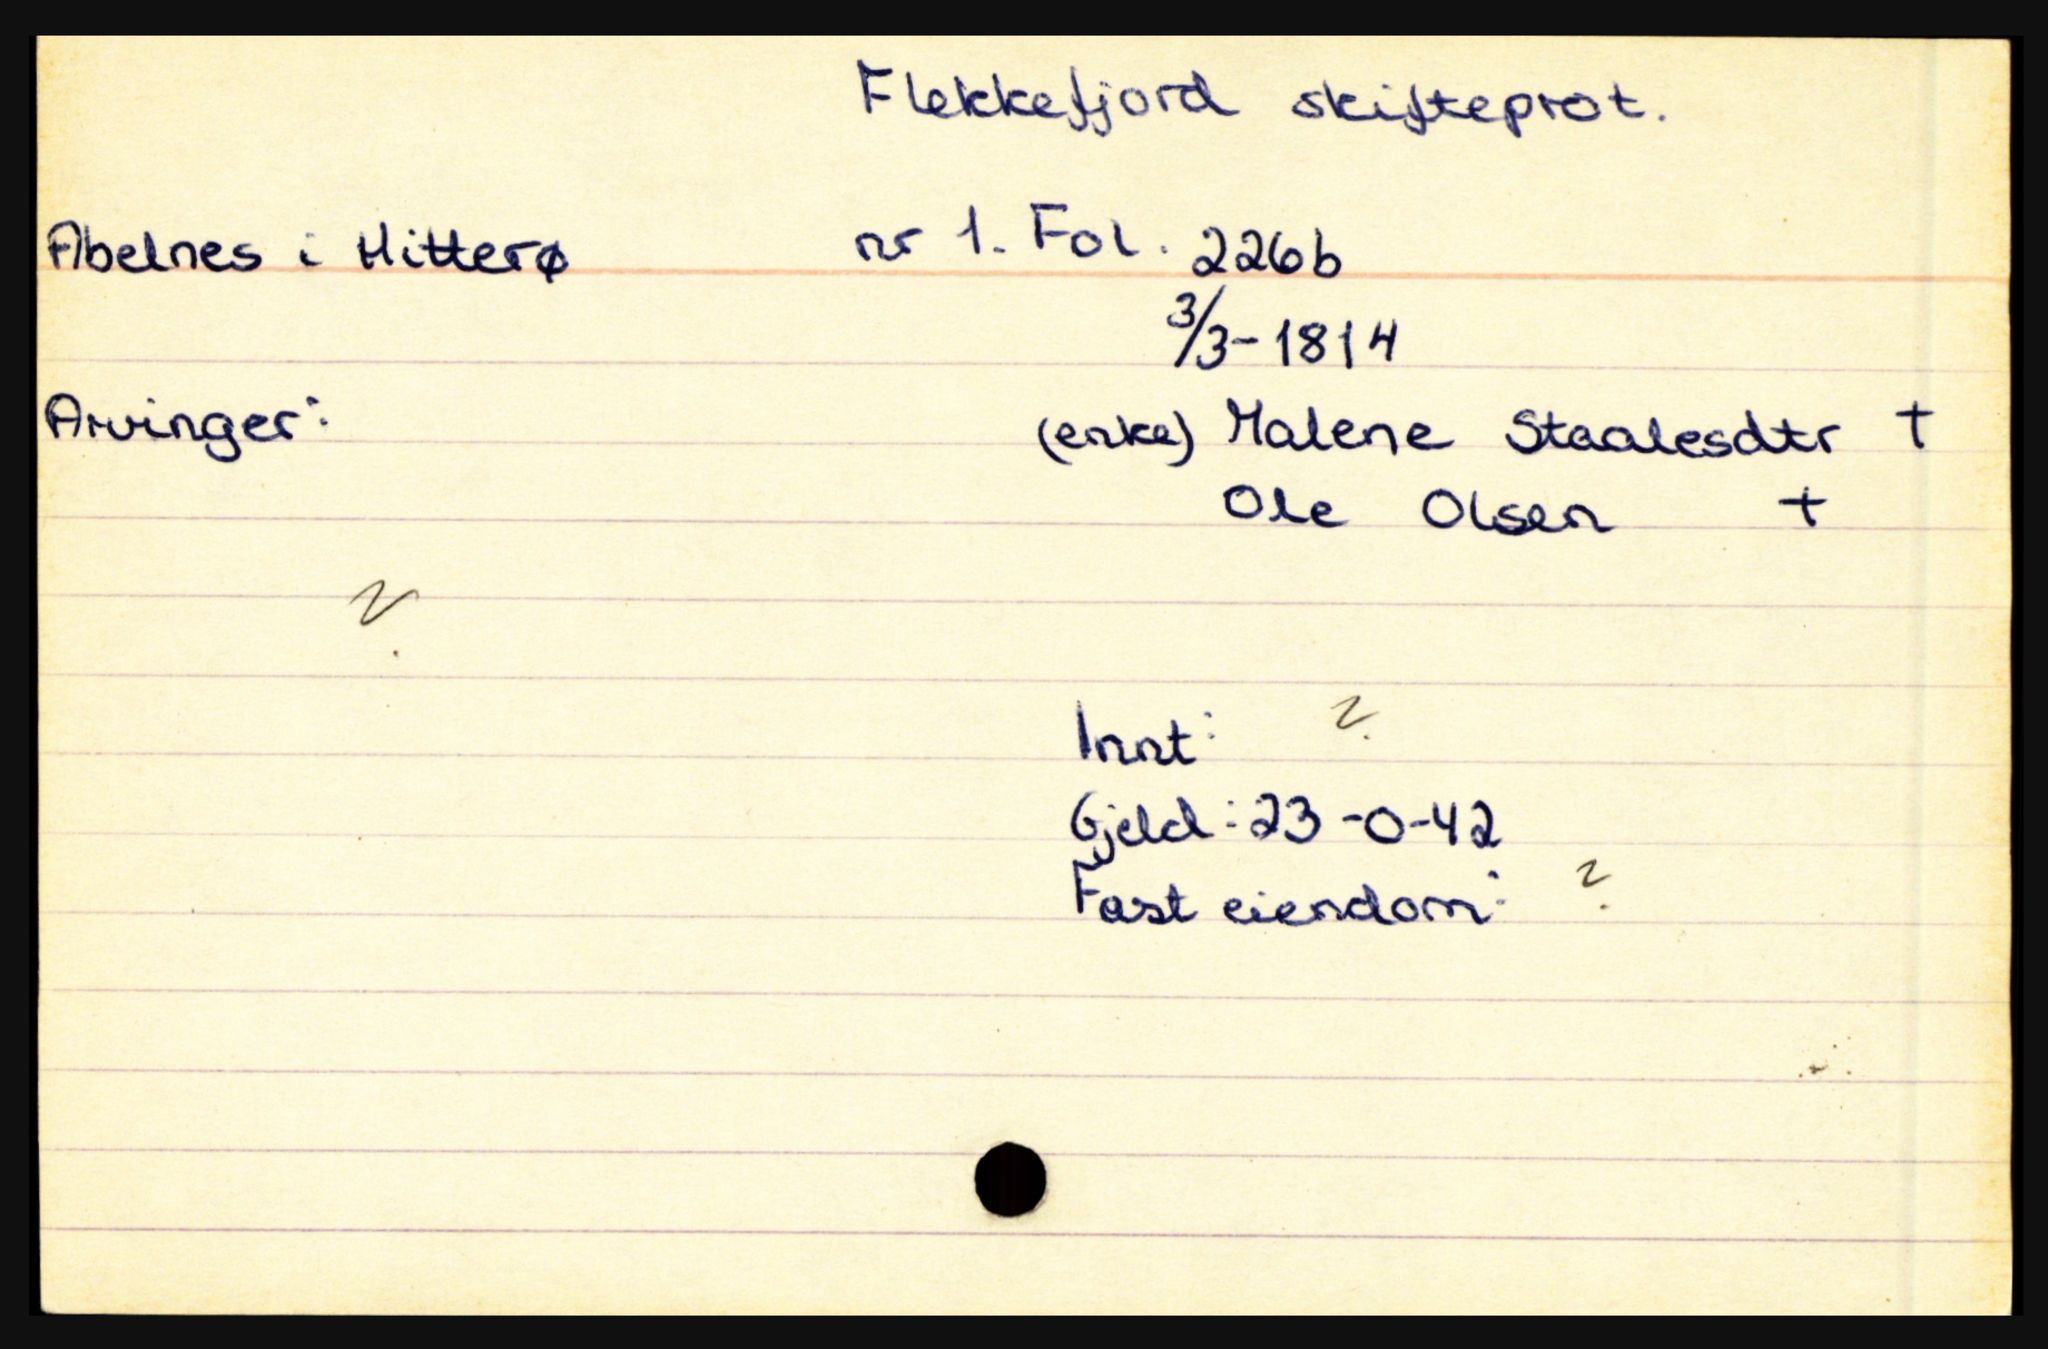 Flekkefjord skifteprot.
Abelnes i Hitterø nr 1. Fol. 226b
3/3-1814
Arvinger: (enke) Malene Staalesdtr +
Ole Olsen +
?
Innt: ?
Gjeld: 23-0-42
Fast eiendom: ?